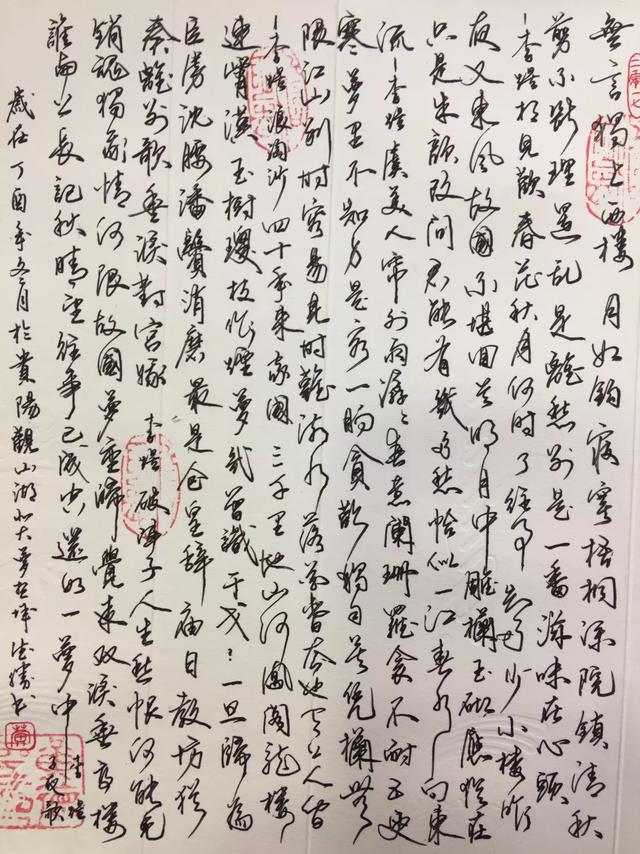 無言獨上西樓 月如鈎寂寞梧桐深院鎮清秋
剪不斷理還亂是離愁別是一番滋味在心頭
-李煜相見歡 春花秋月何時了往事知多少小樓昨
夜又東風故國不堪回首明月中 雕欄玉砌應猶在
只是朱顏改問君能有幾多愁恰似一江春水向東
流-李煜虞美人 帘外雨潺〻春意闌珊羅衾不耐五更
寒夢里不知身是客一晌貪歡獨自莫凭欄無
限江山別時容易見時難流水落花春去也天上人間
-李煜浪淘沙 四十年來家國 三千里地山河鳳閣龍樓
連霄漢玉樹瓊枝作煙夢幾曾識干戈？一旦歸為
臣虜沈腰潘鬢消磨 最是倉皇辭廟日教坊猶
奏離別歌垂淚對宮娥 李煜破陣子 人生愁恨何能免
銷魂獨我情何限故國夢重歸覺來雙淚垂高樓
誰與上長記秋晴望往事已成空還如一夢中 李煜
子夜歌
歲在丁酉年冬月於貴陽觀山湖 書
黃